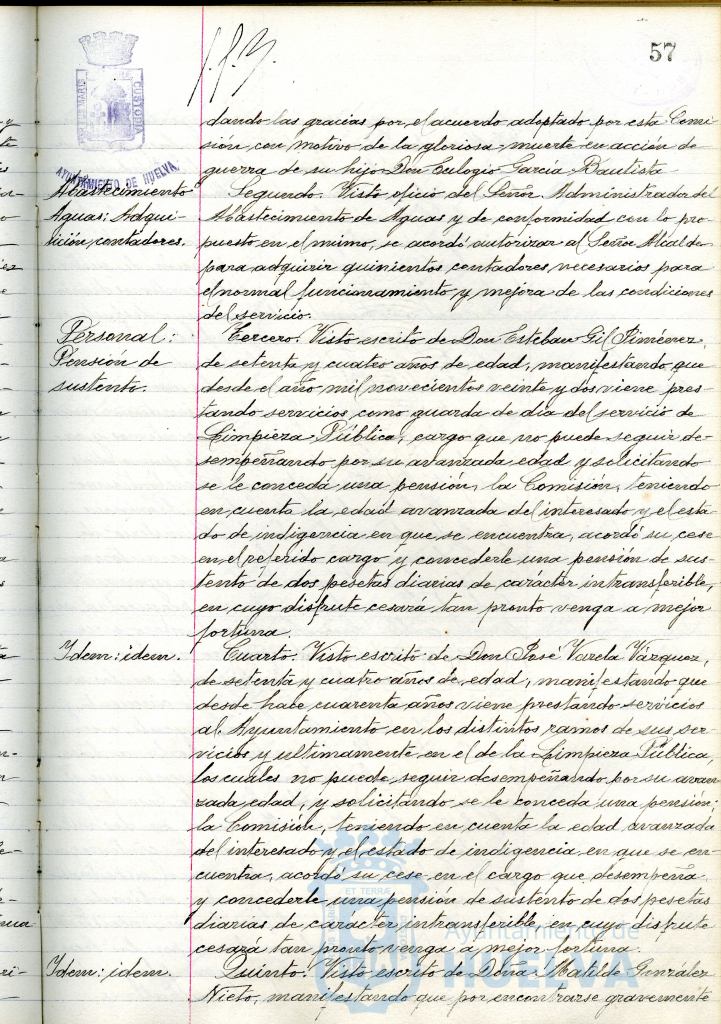 57
AYUNTAMIENTO DE HUELVA
dando las gracias por el acuerdo adoptado por esta Comi
sión con motivo de la gloriosa muerte en acción de
guerra de su hijo Don Eulogio García Bautista
Abastecimiento
Aguas: Adqui-
sición contadores.
Segundo. Visto oficio del Señor Administrador del
Abastecimiento de Aguas y de conformidad con lo pro-
puesto en el mismo, se acordó autorizar al Señor Alcalde
para adquirir quinientos contadores necesarios para
el normal funcionamiento y mejora de las condiciones
del servicio.
Personal:
Pensión de
sustento.
Tercero. Visto escrito de Don Esteban Gil Jiménez,
de setenta y cuatro años de edad, manifestando que
desde el año mil novecientos veinte y dos viene pres-
tando servicios como guarda de dia del servicio de
Limpieza Pública, cargo que no puede seguir de-
sempeñando por su avanzada edad y solicitando
se le conceda una pensión, la Comisión, teniendo
en cuenta la edad avanzada del interesado y el esta-
do de indigencia en que se encuentra, acordó su cese
en el referido cargo y concederle una pensión de sus-
tento de dos pesetas diarias de carácter intransferible,
en cuyo disfrute cesará tan pronto venga a mejor
fortuna.
Idem: idem.
Cuarto. Visto escrito de Don José Varela Vázquez,
de setenta y cuatro años de edad, manifestando que
desde hace cuarenta años viene prestando servicios
al Ayuntamiento en los distintos ramos de sus ser-
vicios y ultimamente en el de la Limpieza Pública,
los cuales no puede seguir desempeñando por su avan-
zada edad, y solicitando se le conceda una pensión;
la Comisión, teniendo en cuenta la edad avanzada
del interesado y el estado de indigencia en que se en-
cuentra, acordó su cese en el cargo que desempeña
y concederle una pensión de sustento de dos pesetas
diarias de carácter intransferible, en cuyo disfrute
cesará tan pronto venga a mejor fortuna.
Idem: idem.
Quinto: Visto escrito de Doña Matilde González
Nieto, manifestando que por encontrarse gravemente
Ayuntamiento de
HUELVA